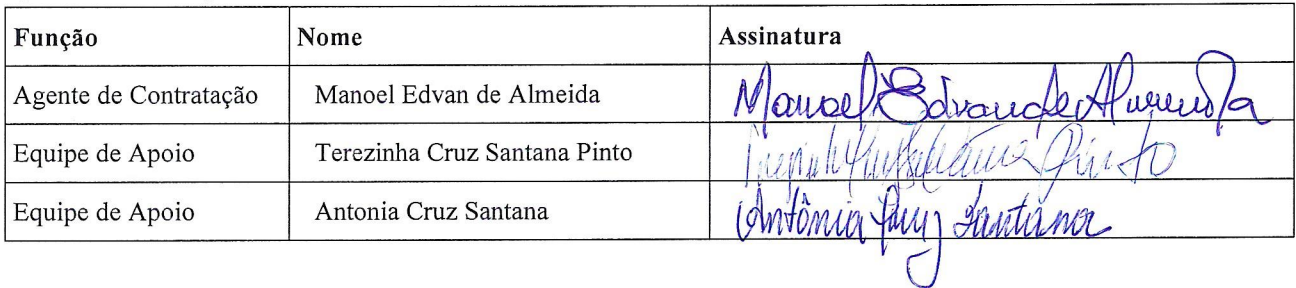 Função Nome Assinatura
Agente de Contratação Manoel Edvan de Almeida Manoel Edvan de Almeida
Equipe de Apoio Terezinha Cruz Santana Pinto Pinto
Equipe de Apoio Antonia Cruz Santana Antônia Cruz Santana